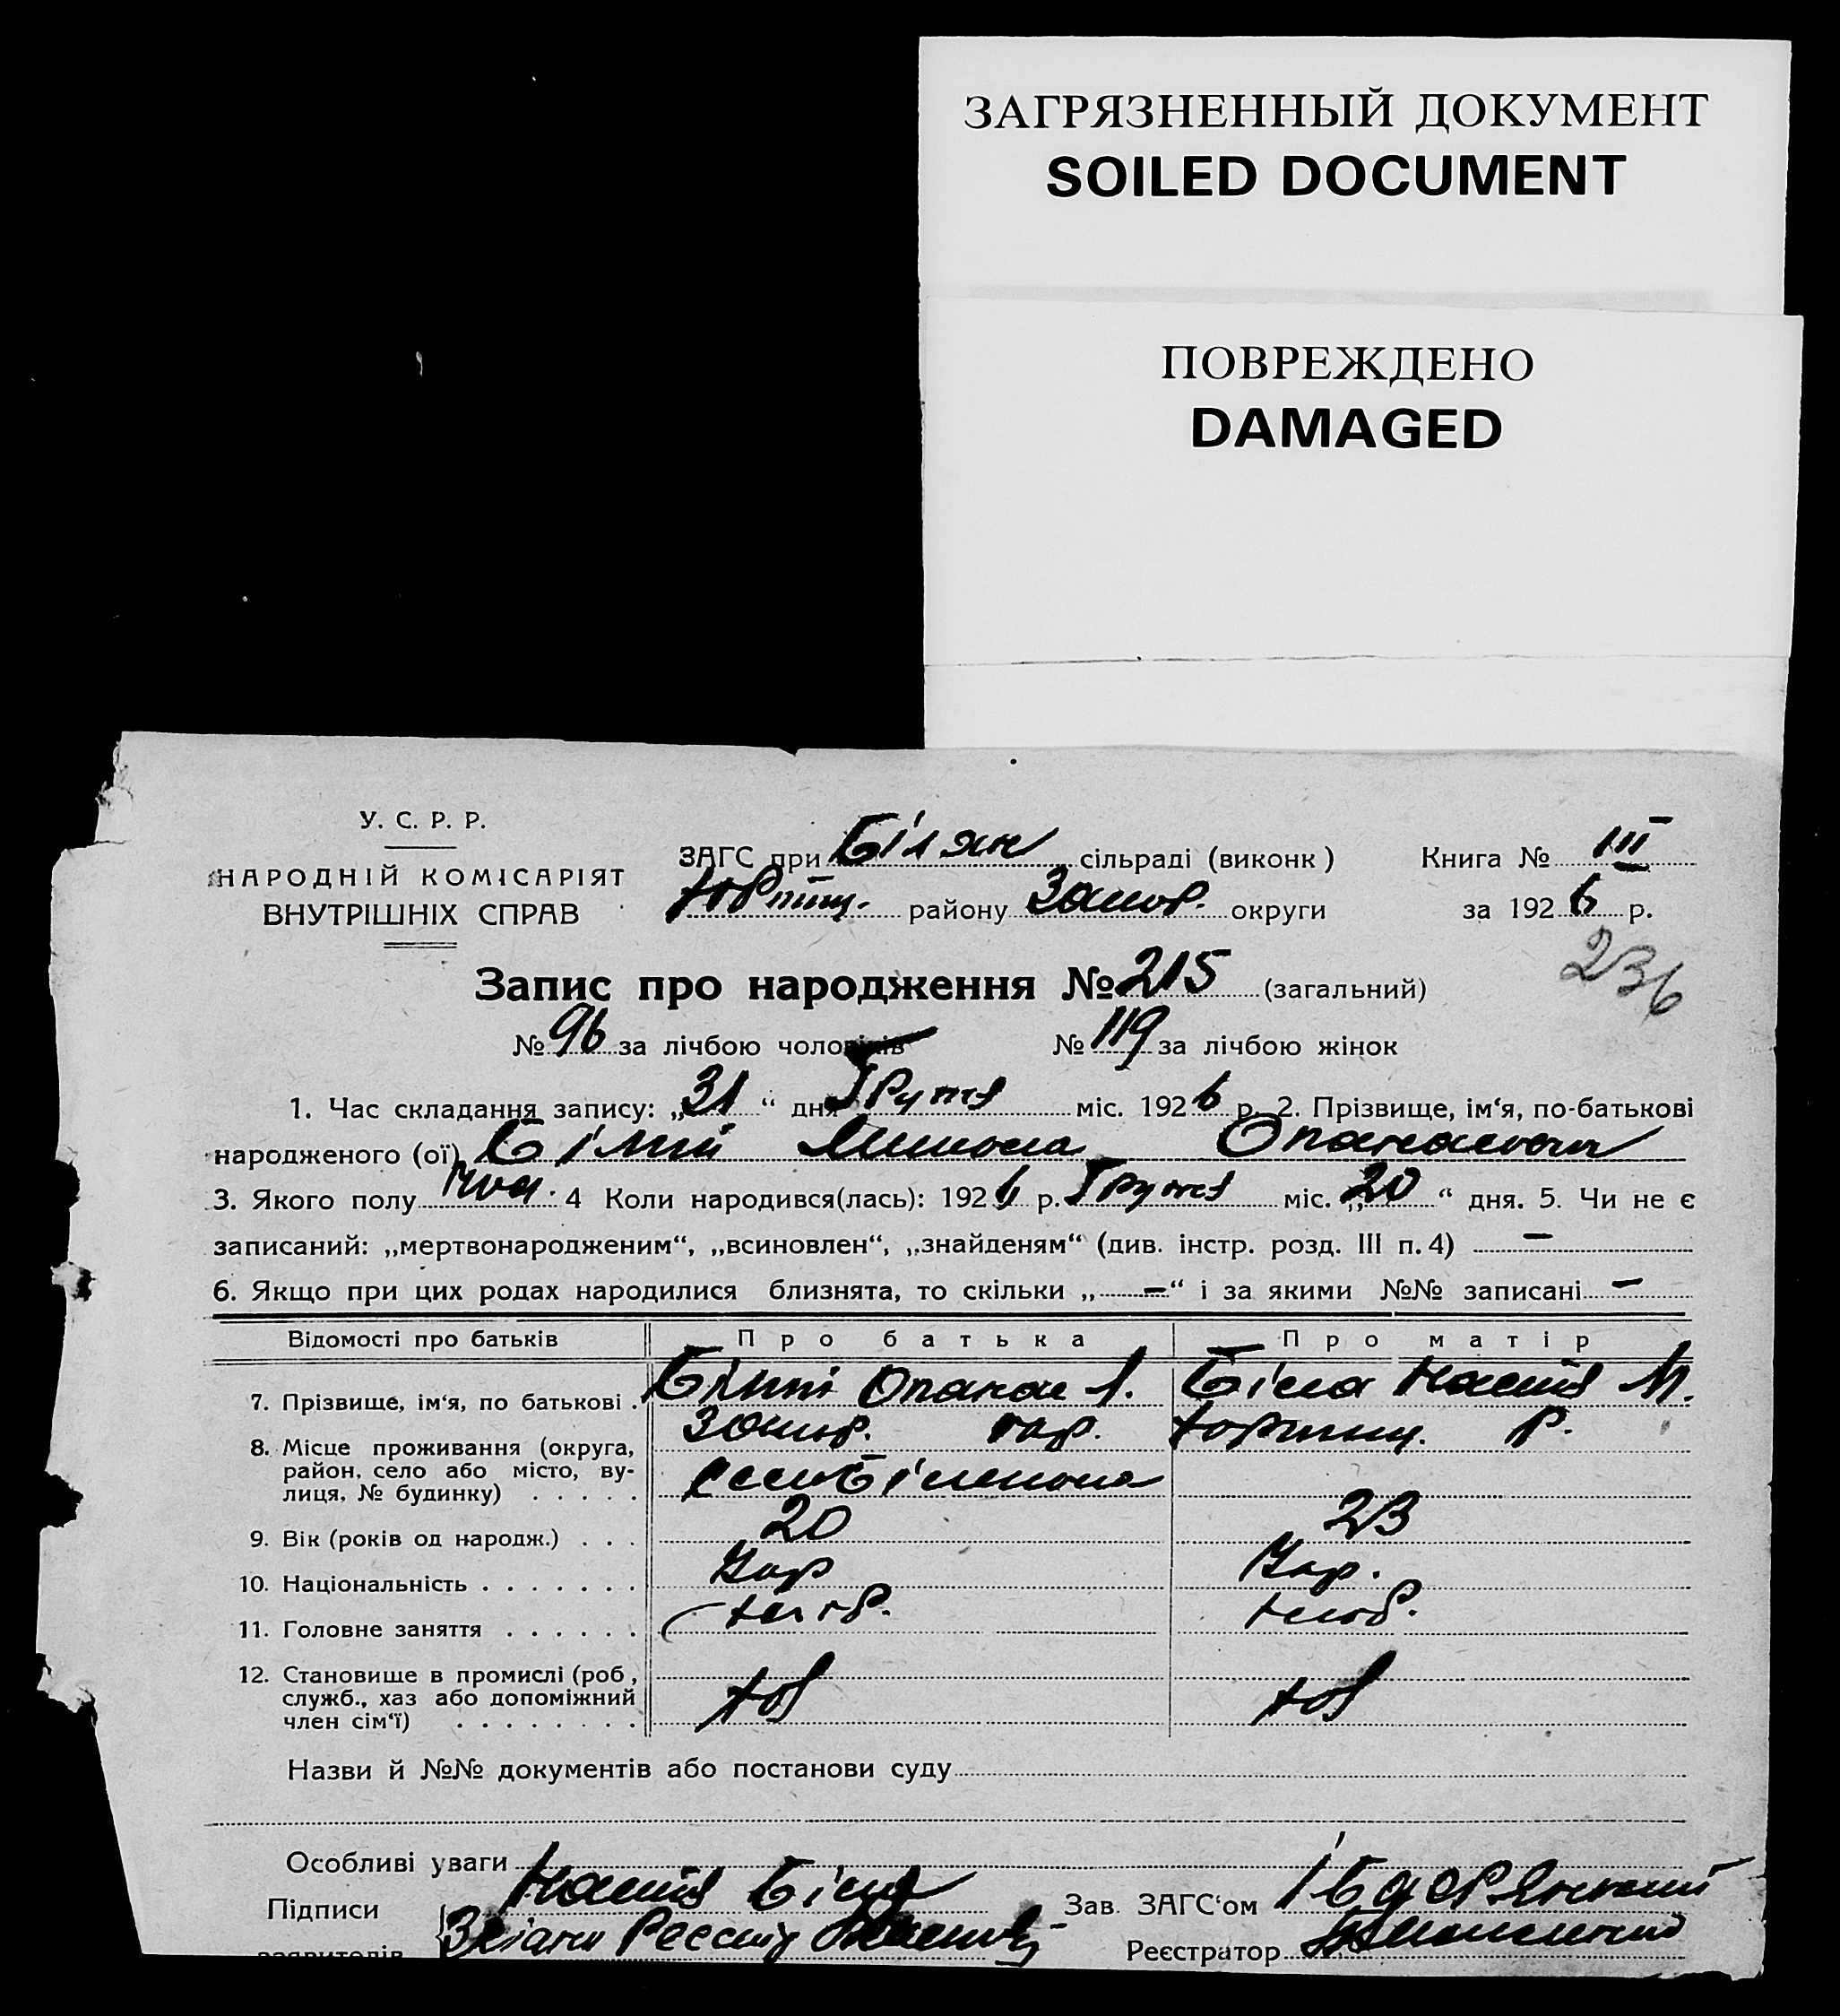 ЗАГРЯЗНЕННЫЙ ДОКУМЕНТ
SOILED DOCUMENT
ПОВРЕЖДЕНО
DAMAGED
У. С. Р. Р.
НАРОДНІЙ КОМІСАРІЯТ
ВНУТРІШНІХ СПРАВ
ЗАГС при Білян сільраді (виконк) Книга № III
району Запор. округи за 1926 р.
236
Запис про народження № 215 (загальний)
№ 96 за лічбою чоловіків № 119 за лічбою жінок
1. Час складання запису: „31“ дня Грудня міс. 1926 р. 2. Прізвище, ім‘я, по-батькові
народженого (ої) Білий Микола Опанасович
3. Якого полу чол. 4 Коли народився(лась): 1926 р. Грудня міс. „20“ дня. 5. Чи не є
записаний: „мертвонародженим“, „всиновлен“, „знайденям“ (див. інстр. розд. III п. 4) —
6. Якщо при цих родах народилися близнята, то скільки „—“ і за якими №№ записані —
Відомості про батьків Про батька Про матір
7. Прізвище, ім‘я, по батькові . Білий Опанас Біла Настя М.
8. Місце проживання (округа, Запор. окр. Хортиц. Р.
район, село або місто, ву-
лиця, № будинку) . . . . . село Біленька
9. Вік (років од народж.) . . . 20 23
10. Національність . . . . . . . Укр Укр.
11. Головне заняття . . . . . . хлібор. хлібор.
12. Становище в промислі (роб,
служб., хаз або допоміжний
член сім‘ї) . . . . . . . . хаз хаз
Назви й №№ документів або постанови суду
Особливі уваги
Підписи Настя Біла Зав. ЗАГС‘ом
заявителів Реєстратор